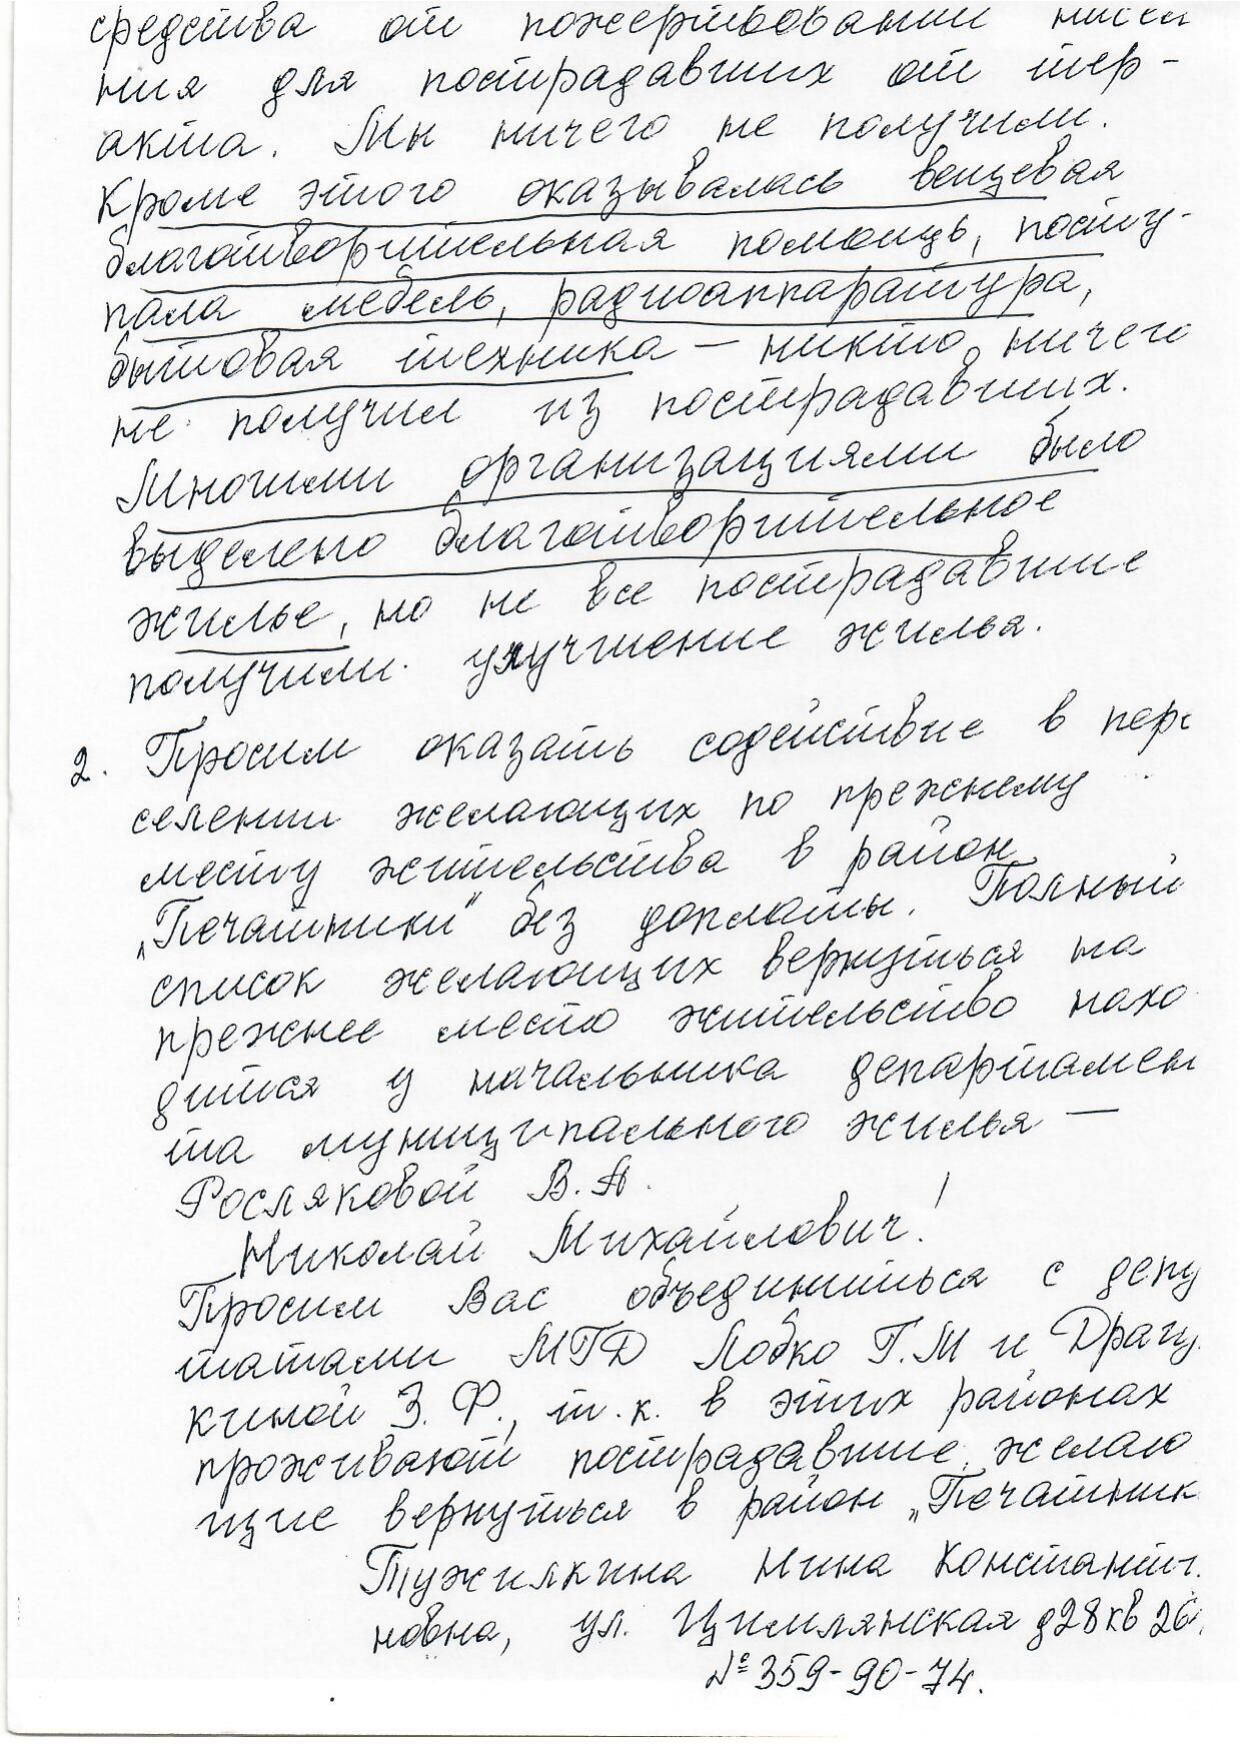 средства от пожертвований насел
ния для пострадавших от тер-
акта. Мы ничего не получили.
Кроме этого оказывалась вещевая
благотворительная помощь, посту-
пала мебель, радиоаппаратура,
бытовая техника — никто ничего
не получил из пострадавших.
Многими организациями было
выделено благотворительное
жилье, но не все пострадавшие
получили улучшение жилья.
2. Просим оказать содействие в пере
селении желающих по прежнему
месту жительства в район
„Печатники" без доплаты. Полный
список желающих вернуться на
прежнее место жительство нахо
дится у начальника департамен
та муниципального жилья —
Росляковой В.А.
Николай Михайлович!
Просим Вас объединиться с депу
татами МГД Лобко Г.М и Драгу
киной З.Ф., т.к. в этих районах
проживают пострадавшие, желаю
щие вернуться в район „Печатник
Тужилкина Нина Константи
новна, ул. Цимлянская д28 кв 26,
№ 359-90-74.